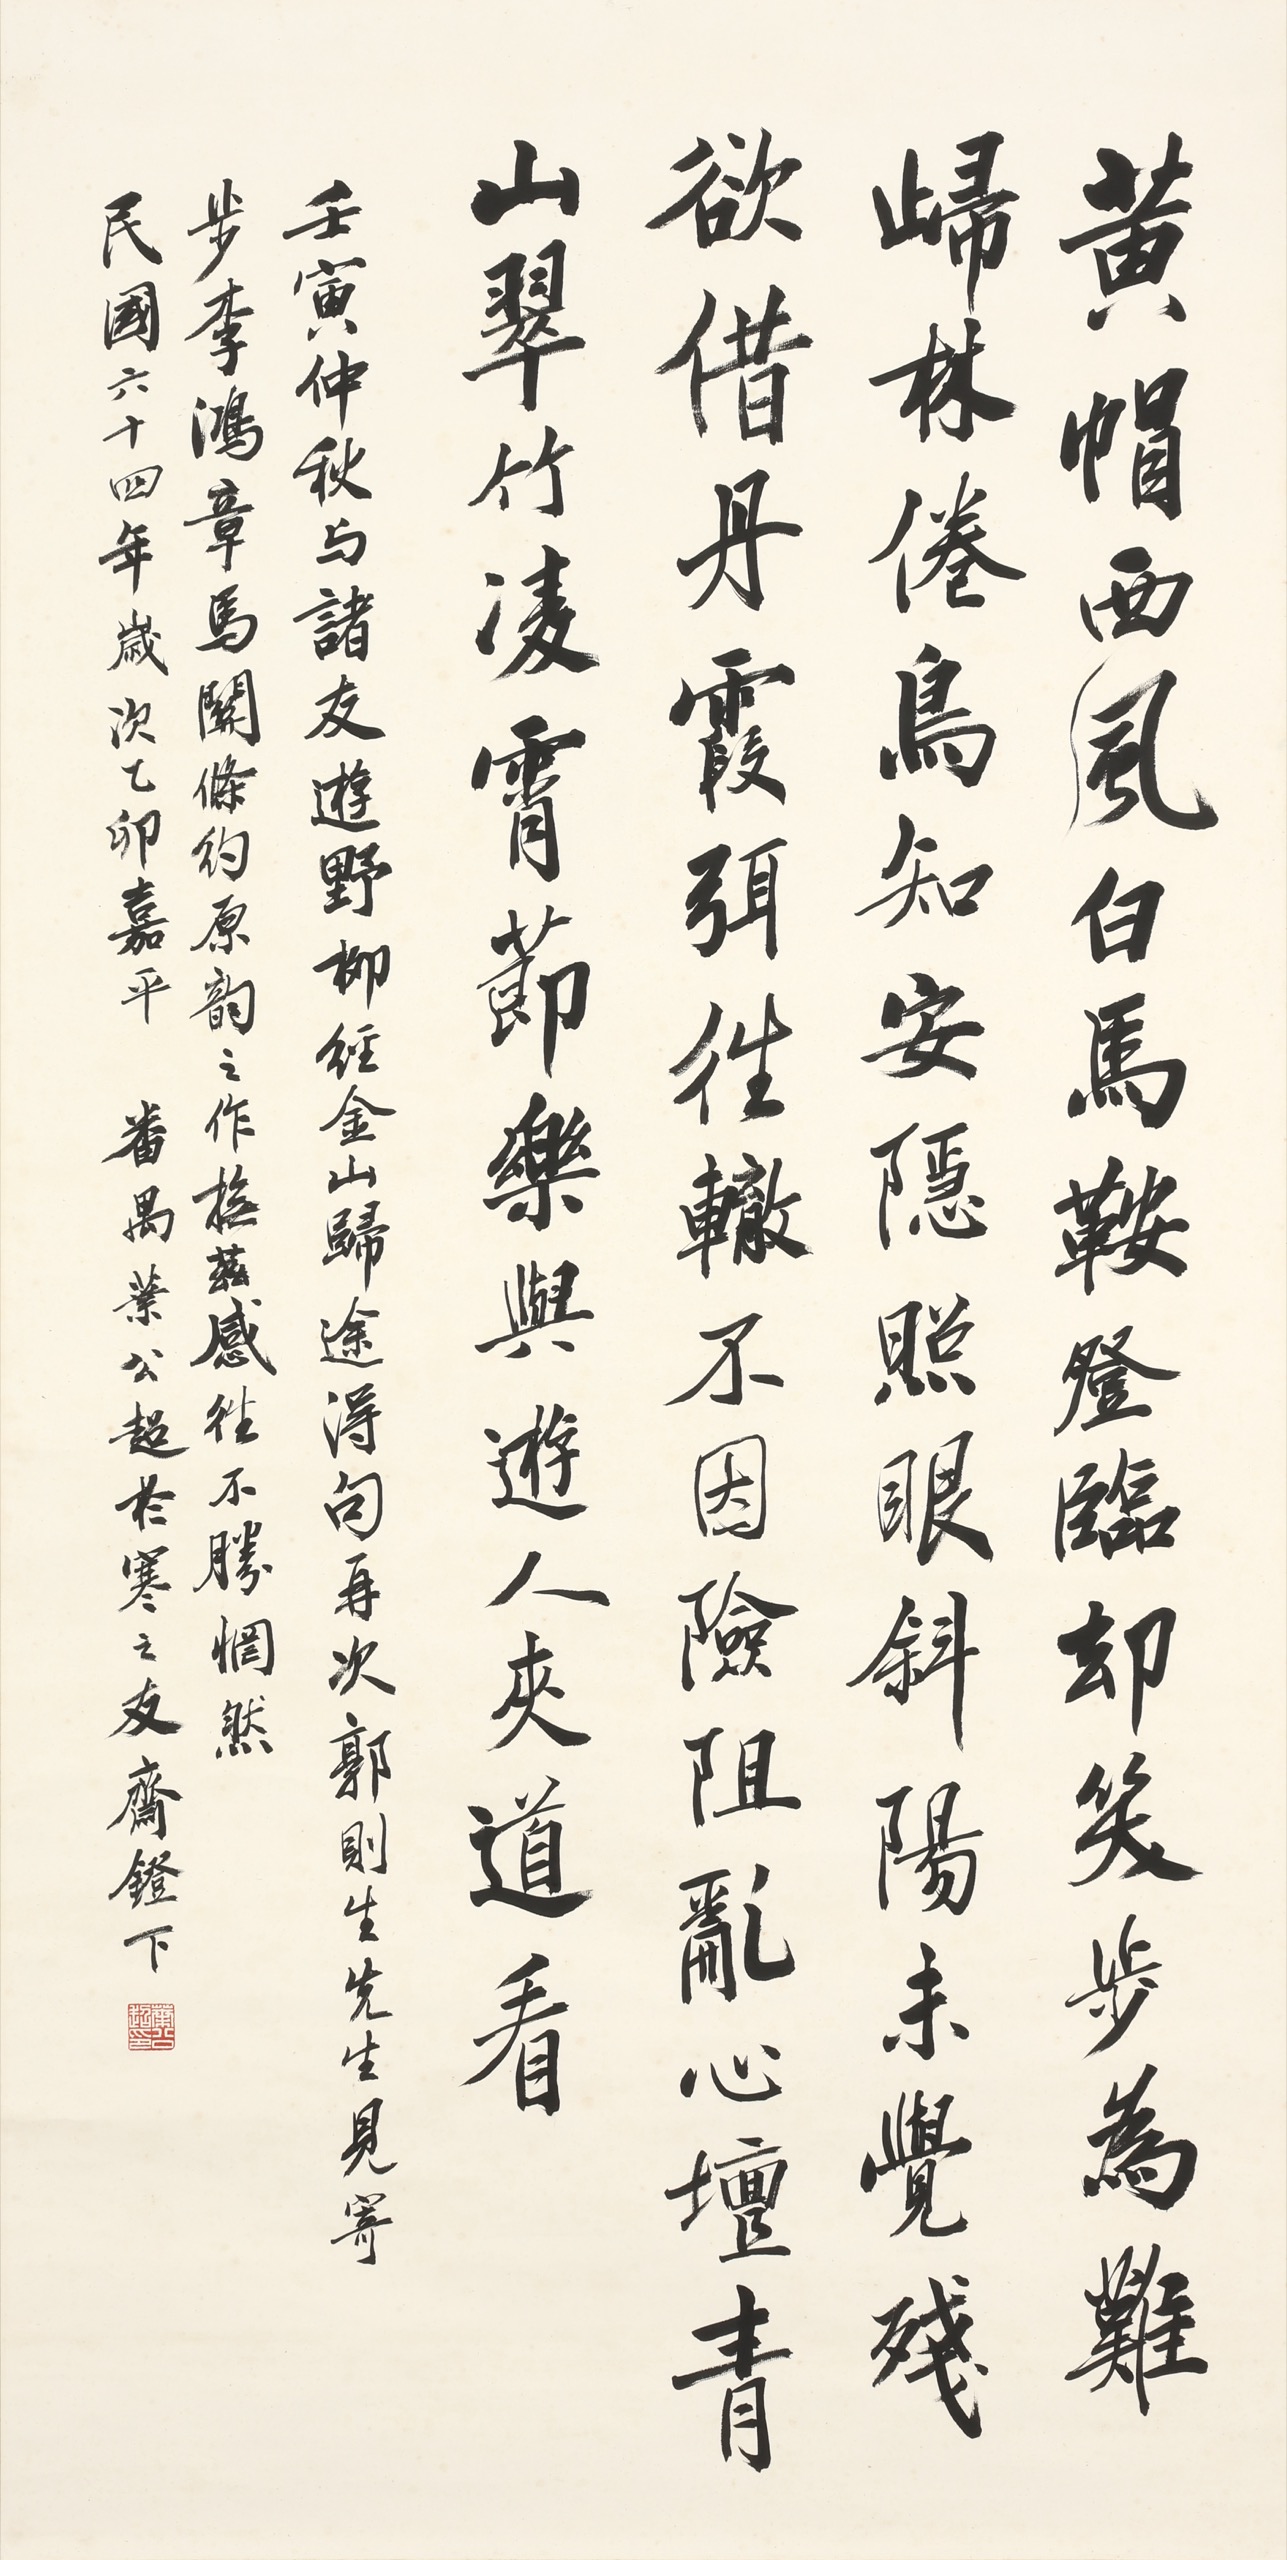 黄帽西風白馬鞍登臨却笑步為難
歸林倦鳥知安隱照眼斜陽未覺殘
欲借丹霞弭往轍不因險阻亂心壇青
山翠竹凌霄節樂與遊人夾道看
壬寅仲秋与諸友遊野柳經金山歸途得句再次郭則生先生見寄
步李鴻章馬關條約原韵之作撫茲感往不勝惘然
民國六十四年歲次乙卯嘉平 番禺葉公超於寒之友齋鐙下
葉公超印